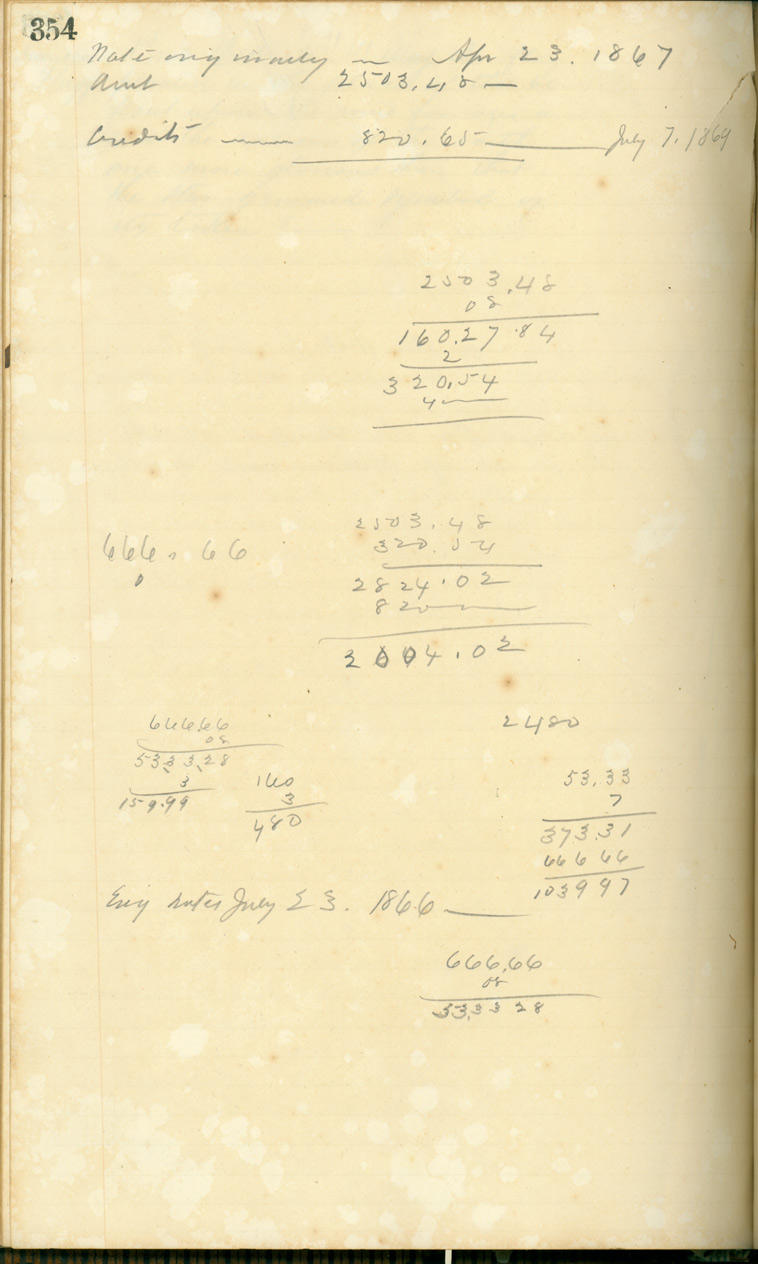 354
Note Apr 23. 1867
Amt 2503.48
Credits 820.65 July 7. 1869
2503.48
08
160.27.84
2
320.54
4
2503.48
320.54
2824.02
820
2004.02
666.66
0
666.66
08
53.33.28
3
159.99
160
3
480
2480
53.33
7
373.31
666 66
103997
notes July 23. 1866
666.66
08
53.33 28